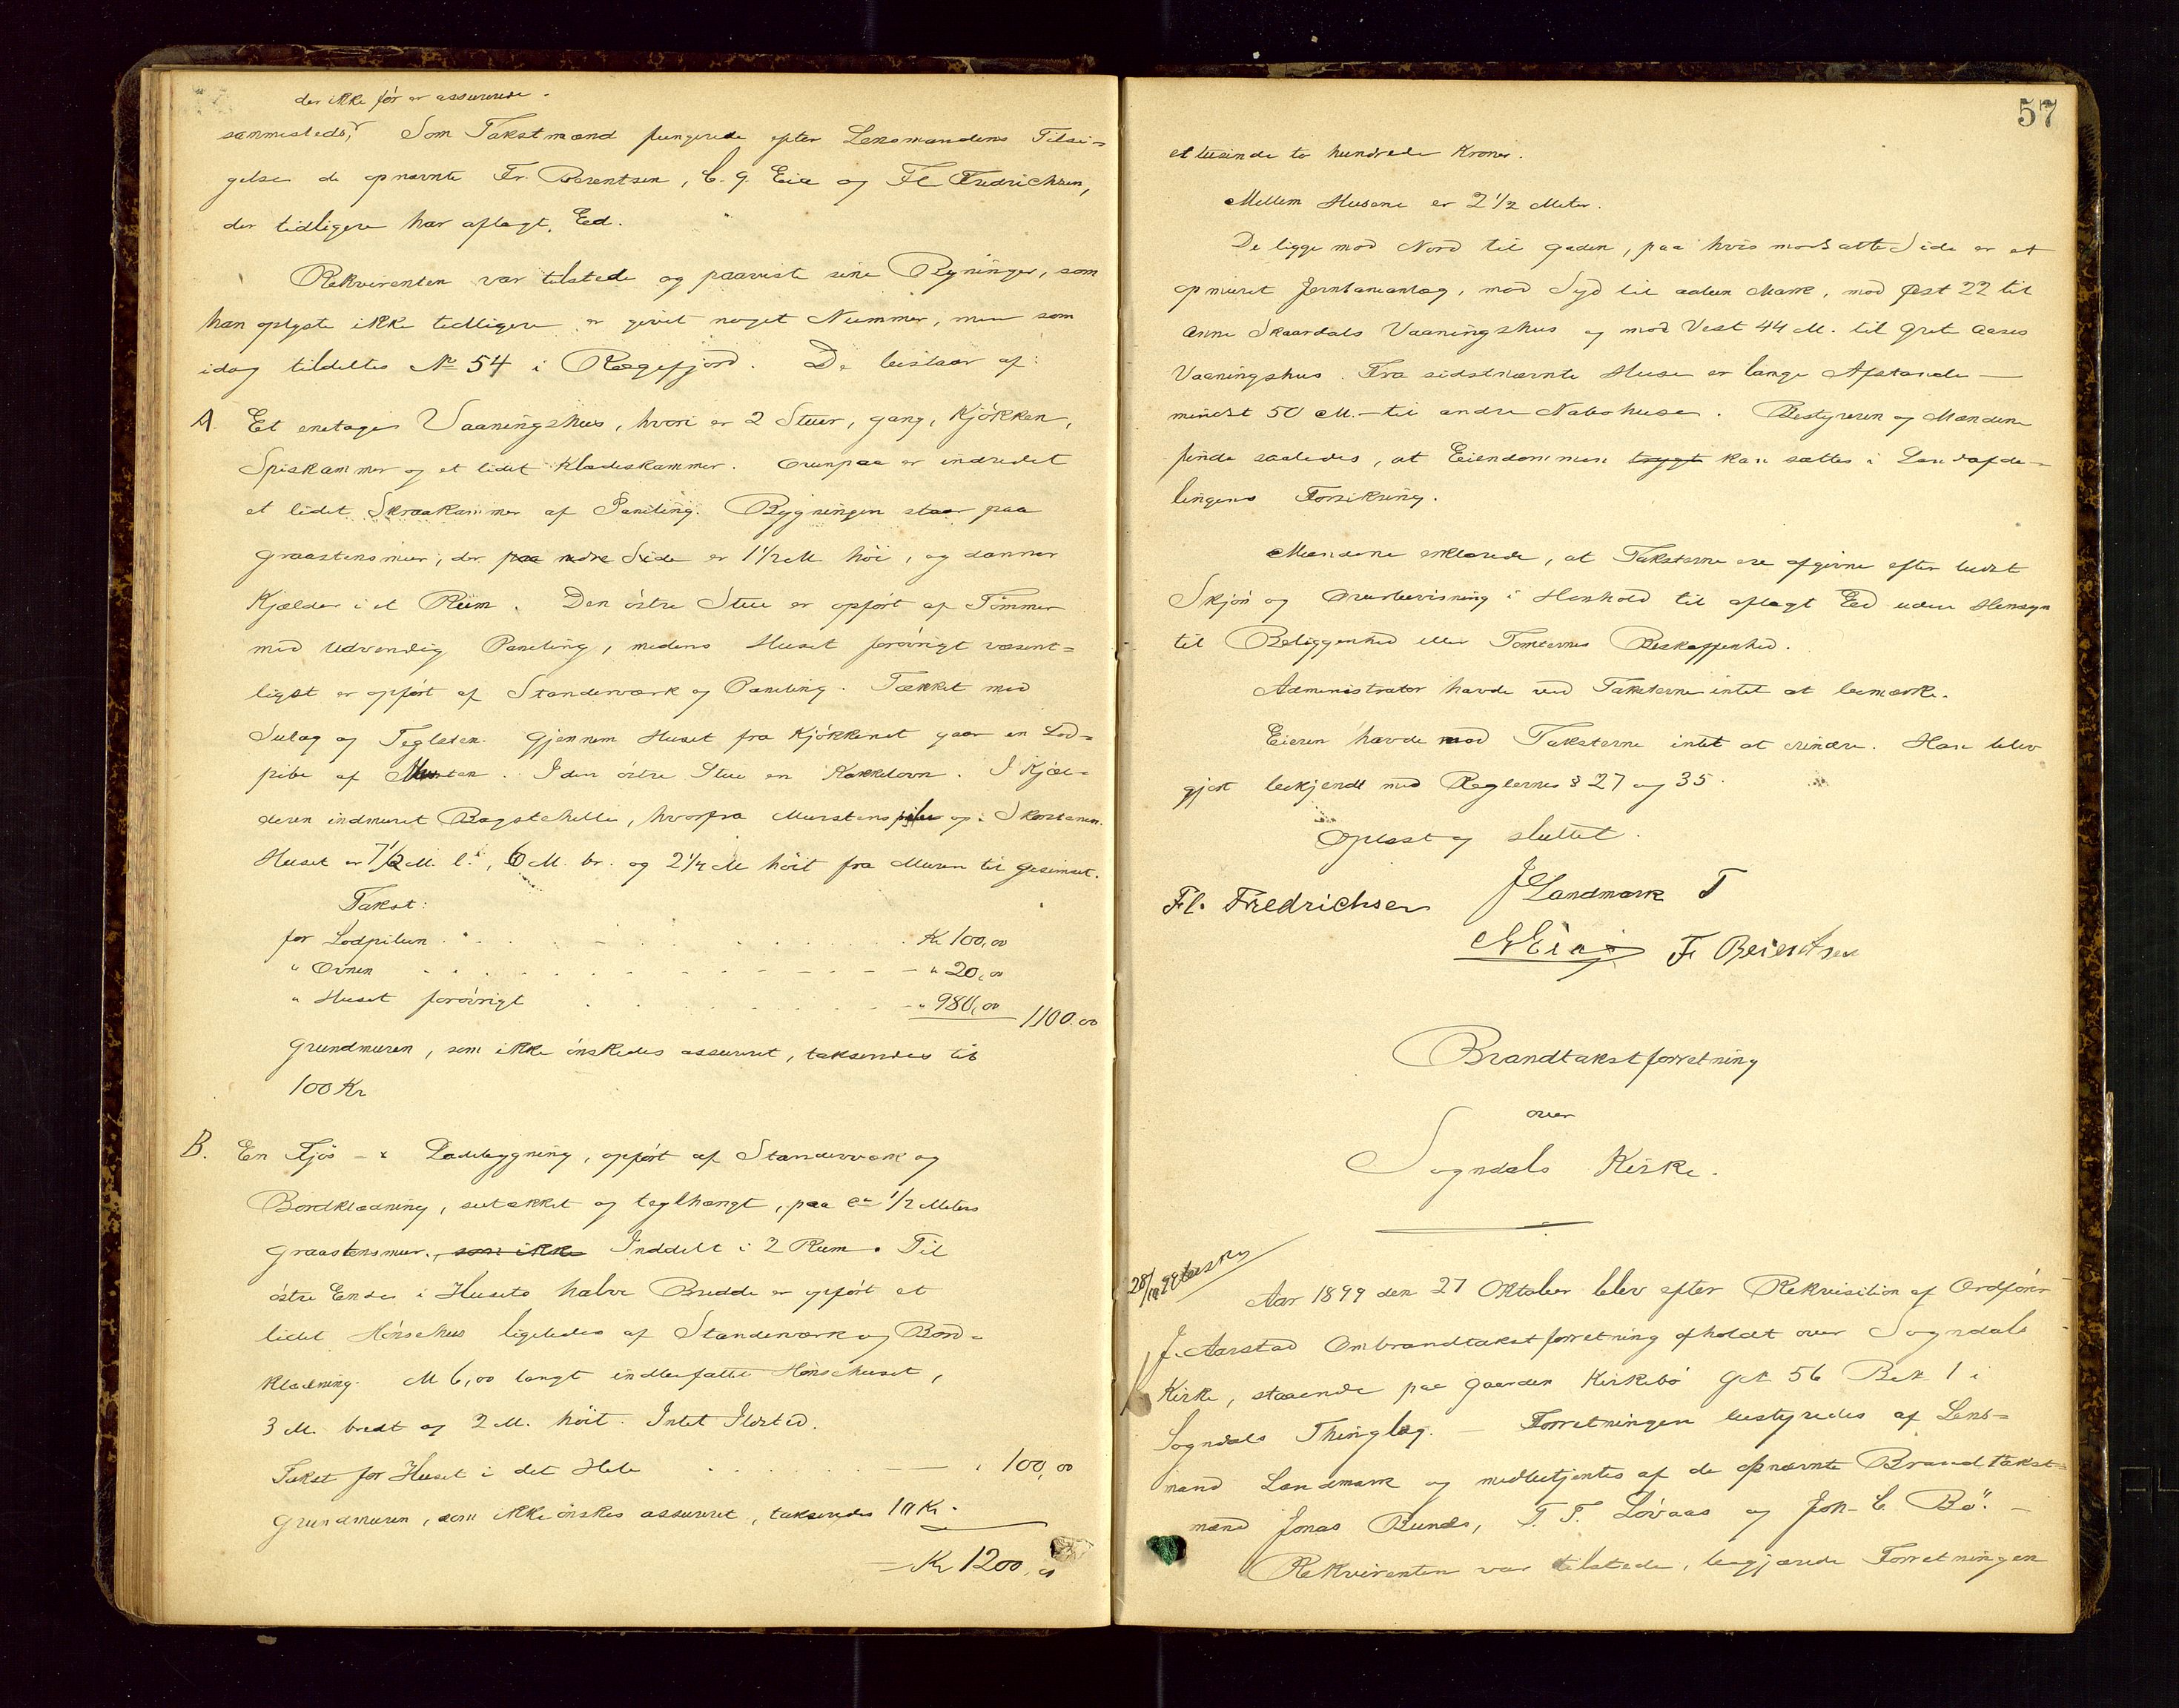 der ikke før er assurerede.
sammesteds. Som Takstmænd fungerede efter Lensmandens Tilsi=
gelse de opnævnte Fr. Berentsen, C. G. Eie og Fl Fredrichsen,
der tidligere har aflagt Eed.
Rekvirenten var tilstede og paaviste sine Bygninger, som
han oplyste ikke tidligere er givet noget Nummer, men som
idag tildeltes № 54 i Rægefjord. De bestaar af:
A. Et enetages Vaaningshus, hvori er 2 Stuer, Gang, Kjøkken,
Spiskammer og et lidet Klædeskammer. Ovenpaa er indredet
et lidet Skraakammer af Paneling. Bygningen staar paa
Graastensmur, der paa nedre Side er 1½ M høi, og danner
Kjælder i et Rum. Den østre Stue er opført af Tømmer
med udvendig Paneling, medens Huset forøvrigt væsent=
ligst er opført af Standerværk og Paneling. Tækket med
Sulag og Teglsten. Gjennem Huset fra Kjøkkenet gaar en Lod=
pibe af Mursten. I den østre Stue en Kakkelovn. I Kjæl=
deren indmuret Bagstehelle, hvorfra Murstens pibe op i Skorstenen.
Huset er 7½ M. l., 6 M. br. og 2¼ M høit fra Muren til Gesimset.
Takst:
for Lodpiben . . . . . Kr 100,00
" Ovnen . . . . . " 20,00
" Huset forøvrigt . . . . . " 980,00 1100.00
Grundmuren, som ikke ønskedes assureret, taksendes til
100 Kr
B. En Fjøs- & Ladebygning, opført af Standerværk og
Bordklædning, sutækket og teglhængt, paa ca ½ Meters
Graastensmur, som ikke Inddelt i 2 Rum. Til
østre Ende i Husets halve Bredde er opført et
lidet Hønsehus ligeledes af Standerværk og Bord=
klædning. M 6,00 langt indbefattet Hønsehuset,
3 M. bredt og 2 M. høit. Intet Ildsted.
Takst for Huset i det Hele . . . . . " 100,00
Grundmuren, som ikke ønskes assureret, takseredes 10 Kr.
Kr 1200,00
57
et tusinde to hundrede Kroner.
Mellem Husene er 2½ Meter.
De ligge mod Nord til Gaden, paa hvis modsatte Side er et
opmuret Jernbaneanlæg, mod Syd til aaben Mark, mod Øst 22 til
Anne Skaardals Vaaningshus og mod Vest 44 M. til Gret Aases
Vaaningshus. Fra sidstnævnte Huse er lange Afstande —
mindst 50 M. — til andre Nabohuse. Bestyreren og Mændene
finde saaledes, at Eiendommen trygt kan sættes i Landafde=
lingens Forsikring.
Mændene erklærede, at Taksterne ere afgivne efter bedst
Skjøn og Overbevisning i Henhold til aflagt Eed uden Hensyn
til Beliggenhed eller Tomternes Beskaffenhed.
Administrator havde ved Taksterne intet at bemærke.
Eieren havde mod Taksterne intet at erindre. Han blev
gjort bekjendt med Reglernes § 27 og 35.
Oplæst og sluttet.
Fl. Fredrichsen J Landmark
F Berentsen
Brandtakstforretning
over
Sogndals Kirke.
Aar 1899 den 27 Oktober blev efter Rekvisition af Ordfører
J. Aarstad Ombrandtakstforretning afholdt over Sogndals
Kirke, staaende paa Gaarden Kirkebø G№ 56 B№ 1 i
Sogndals Thinglag. — Forretningen bestyredes af Lens=
mand Landmark og medbetjentes af de opnævnte Brandtakst=
mænd Jonas Bunds, T. T. Løvaas og Joh. C. Bø. —
Rekvirenten var tilstede, begjærede Forretningen